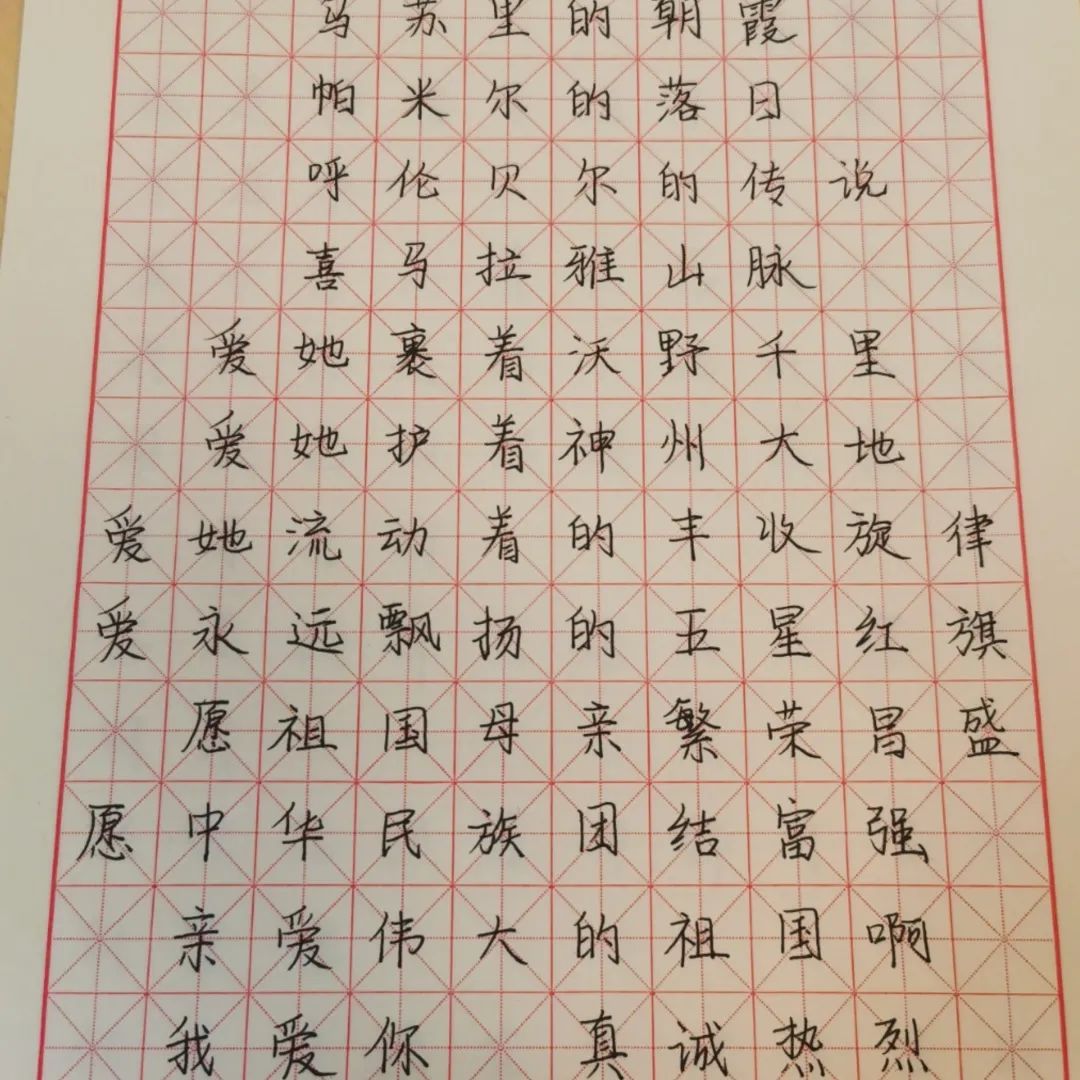 马苏里的朝霞
帕米尔的落日
呼伦贝尔的传说
喜马拉雅山脉
爱她裹着沃野千里
爱她护着神州大地
爱她流动着的丰收旋律
爱永远飘扬的五星红旗
愿祖国母亲繁荣昌盛
愿中华民族团结富强
亲爱伟大的祖国啊
我爱你 真诚热烈